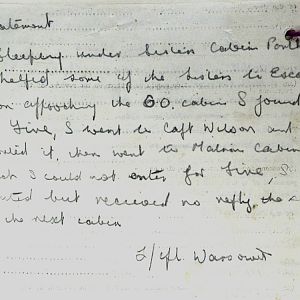 tatement
Sleeping under Sisters Cabin Port
helped some of the Sisters to Esca
on approaching the OO. cabin I found
Fire, I went to Capt Wilson and
ted it, then went to Matron Cabin
ch I could not enter for Fire, I
ted but received no reply, the
the next cabin
L/Cpl.